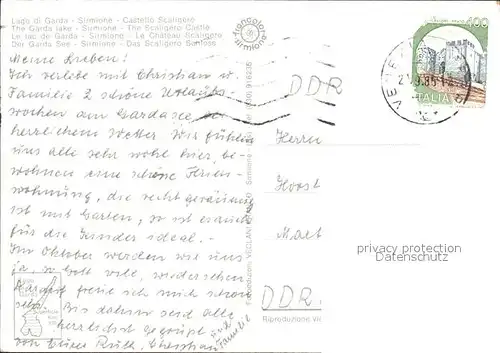 Lago di Garda - Sirmione - Castello Scaligero
The Garda lake - Sirmione - The Scaligero Castle
Le lac de Garda - Sirmione - Le Château Scaligero
Der Garda See - Sirmione - Das Scaligero Schloss
Meine Lieben!
Ich verlebe mit Christian u.
Familie 2 schöne Urlaubs-
wochen am Gardasee bei
herrlichem Wetter. Wir fühlen
uns alle sehr wohl hier, be-
wohnen eine schöne Ferien-
wohnung, die recht geräumig
ist mit Garten, so ist es auch
für die Kinder ideal.-
Im Oktober werden wir uns
ja, so Gott will, wiedersehen.
Darauf freue ich mich schon
sehr. Bis dahin seid alle
herzlichst gegrüßt
von Eurer Ruth, Christian und Familie
DDR
Herrn
Horst
DDR
100
ITALIA
privacy protection
Datenschutz